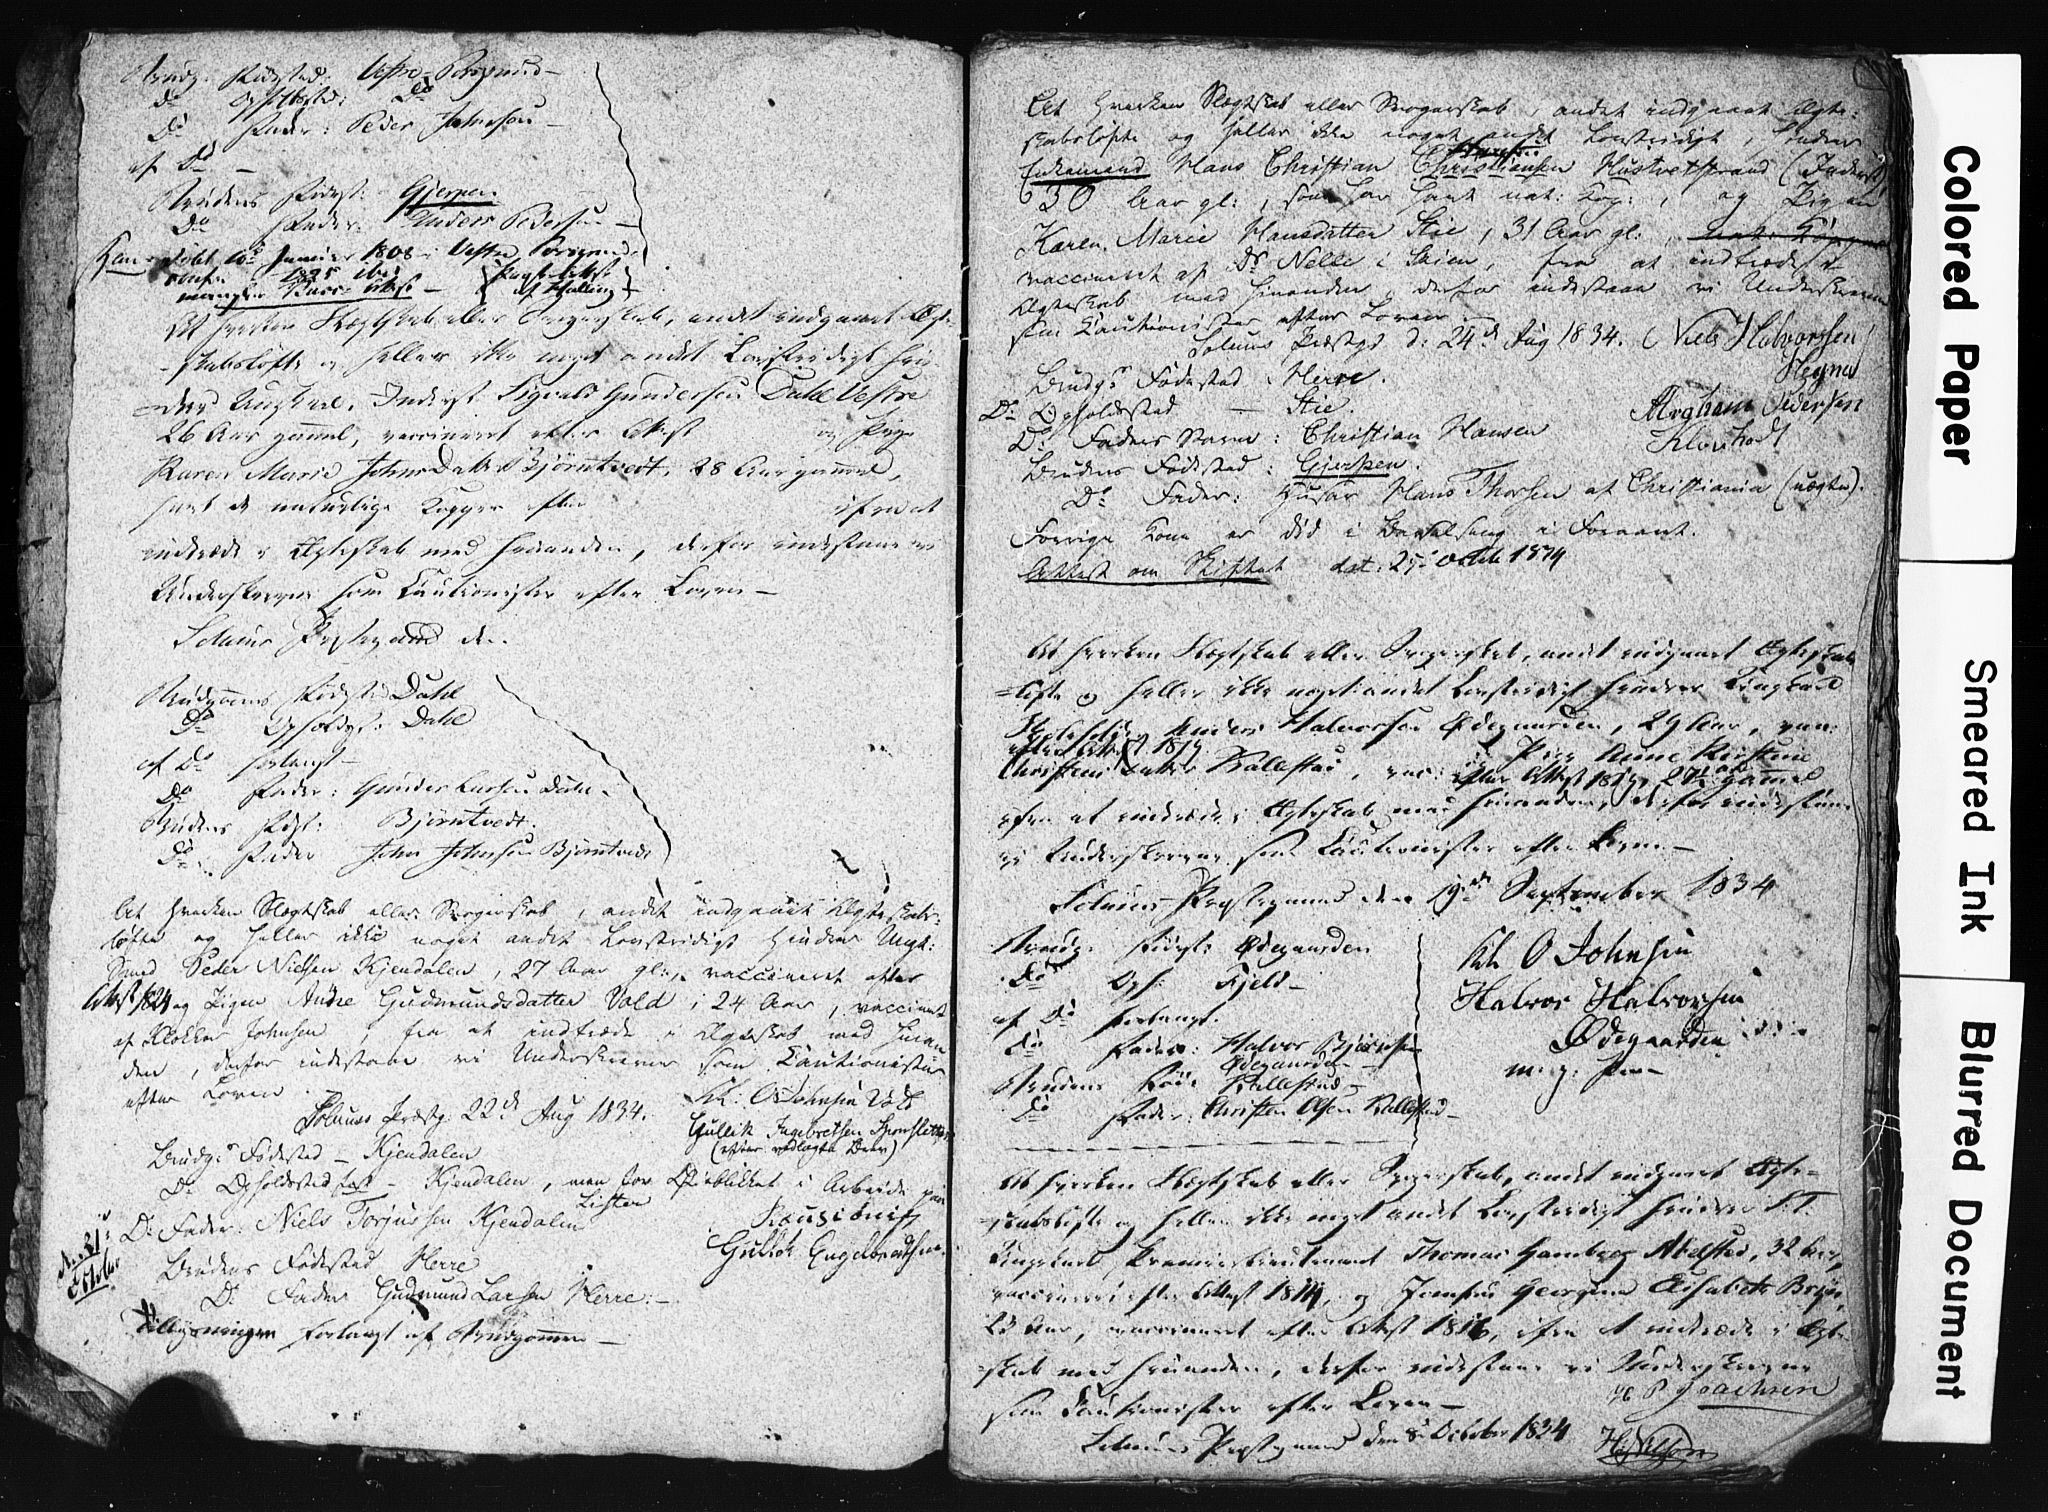 Brudg. Fødested: Vestre Porsgrund
Do Opholdssted: Do
Do Fader: Peder Johnsen
af Do
Brudens Fødest: Gjerpen
Do Fader: Anders Pedersen
døbt Januar 1808 i Vestre Porsgrund
conf. 1825 ibid
mangler Vacc: Attest
At hverken Slægtskab eller Svogerskab, andet indgaaet Ægte-
skabsløfte og heller ikke noget andet Lovstridigt hin-
drer Ungkarl, Inderst Sigvald Gundersen Dahl Vestre
26 Aar gammel, vaccineret efter Attest og Pige
Karen Marie Johnsdatter Bjørntvedt, 28 Aar gammel,
havt de naturlige Kopper efter ifra at
indtræde i Ægteskab med hinanden, derfor indestaae vi
Underskrevne som Cautionister efter Loven
Solums Præstegaard den
Brudgommens Fødested Dahl
Do Opholdst: Dahl
af Do forlangt
Do Fader: Gunder Larsen Dahl
Brudens Fødst: Bjørntvedt
Do Fader John Johnsen Bjørntvedt
At hverken Slægtskab eller Svogerskab, andet indgaaet Ægteskabs-
løfte og heller ikke noget andet Lovstridigt hindrer Ungk:
Peder Nielsen Kjendalen, 27 Aar gl:, vaccineret efter
Attest 1824 og Pigen Andre Gudmundsdatter Vold, 24 Aar, vaccineret
af Klokker Johnsen, fra at indtræde i Ægteskab med hinan-
den, derfor indestaae vi Underskrevne som Cautionister
efter Loven
Solums Præstg: 22d Aug 1834.
O Johnsen Vold
Gullik Ingebretsen
Brudgs Fødested - Kjendalen
Do Opholdssted - Kjendalen, men for Øieblikket i Arbeide
Do Fader: Niels Torjussen Kjendalen
Gullik Engelbrecktsen
Brudens Fødested Herre
Do Fader Gudmund Larsen Herre
Den 31 October
Tillysningen forlangt af Brudgommen
At hverken Slægtskab eller Svogerskab, andet indgaaet Ægte-
skabsløfte og heller ikke noget andet Lovstridigt, hindrer
Enkemand Hans Christian Christiansen Hustvetstrand (Inderst)
30 Aar gl:, som har havt nat: Kop:, og Pigen
Karen Marie Hansdatter Stie, 31 Aar gl:, nat: Kopper
vaccineret af Dr Nelle i Skien, fra at indtræde i
Ægteskab med hinanden, derfor indestaae vi Underskrevne
som Cautionister efter Loven
Solums Præstgd d: 24d Aug 1834. Niels Halvorssen
Hegna
Brudgs Fødested - Herre.
Do Opholdssted - Stie.
Abraham Pedersen
Do Faders Navn: Christian Hansen
Brudens Fødested: Gjerpen.
Do Fader: Husar Hans Thorsen af Christiania (uægte).
Forrige Kone er død i Barselseng i Foraaret.
Attest om Skiftet dat: 25 Octbr 1834
At hverken Slægtskab eller Svogerskab, andet indgaaet Ægteskabs-
løfte og heller ikke noget andet Lovstridigt hindrer Ungkarl
Anders Halvorsen Ødegaarden, 29 Aar, vac:
efter Attest 1814 Pige Anne Kirstine
Christensdatter Ballestad, vac: efter Attest 1814, 24 Aar gamel
ifra at indtræde i Ægteskab med hinanden, derfor indestaae
vi Underskrevne som Cautionister efter Loven
Solums Præstegaard den 19de September 1834
Brudg. Fødst: Ødegaarden
Do Oph: Fjeld
af Do forlangt.
Do Fader: Halvor Bjørnsen
Ødegaarden
Brudens Føds: Ballestad
Do Fader: Christen Olsen Ballestad
O Johnsen
Halvor Halvorsen
Ødegaarden
m. p. Pen
At hverken Slægtskab eller Svogerskab, andet indgaaet Ægte-
skabsløfte og heller ikke noget andet Lovstridigt hindrer S.T.
Ungkarl, Premierlieutenant Thomas Hamberg Abelsted, 32 Aar,
vaccineret efter Attest 1814, og Jomfru Georgine Elisabeth Bryn,
Aar, vaccineret efter Attest 1816, ifra at indtræde i Ægte-
skab med hinanden, derfor indestaae vi Underskrevne
som Cautionister efter Loven
P Joachsen
Solums Præstegaard den 8 October 1834
Colored Paper
Smeared Ink
Blurred Document